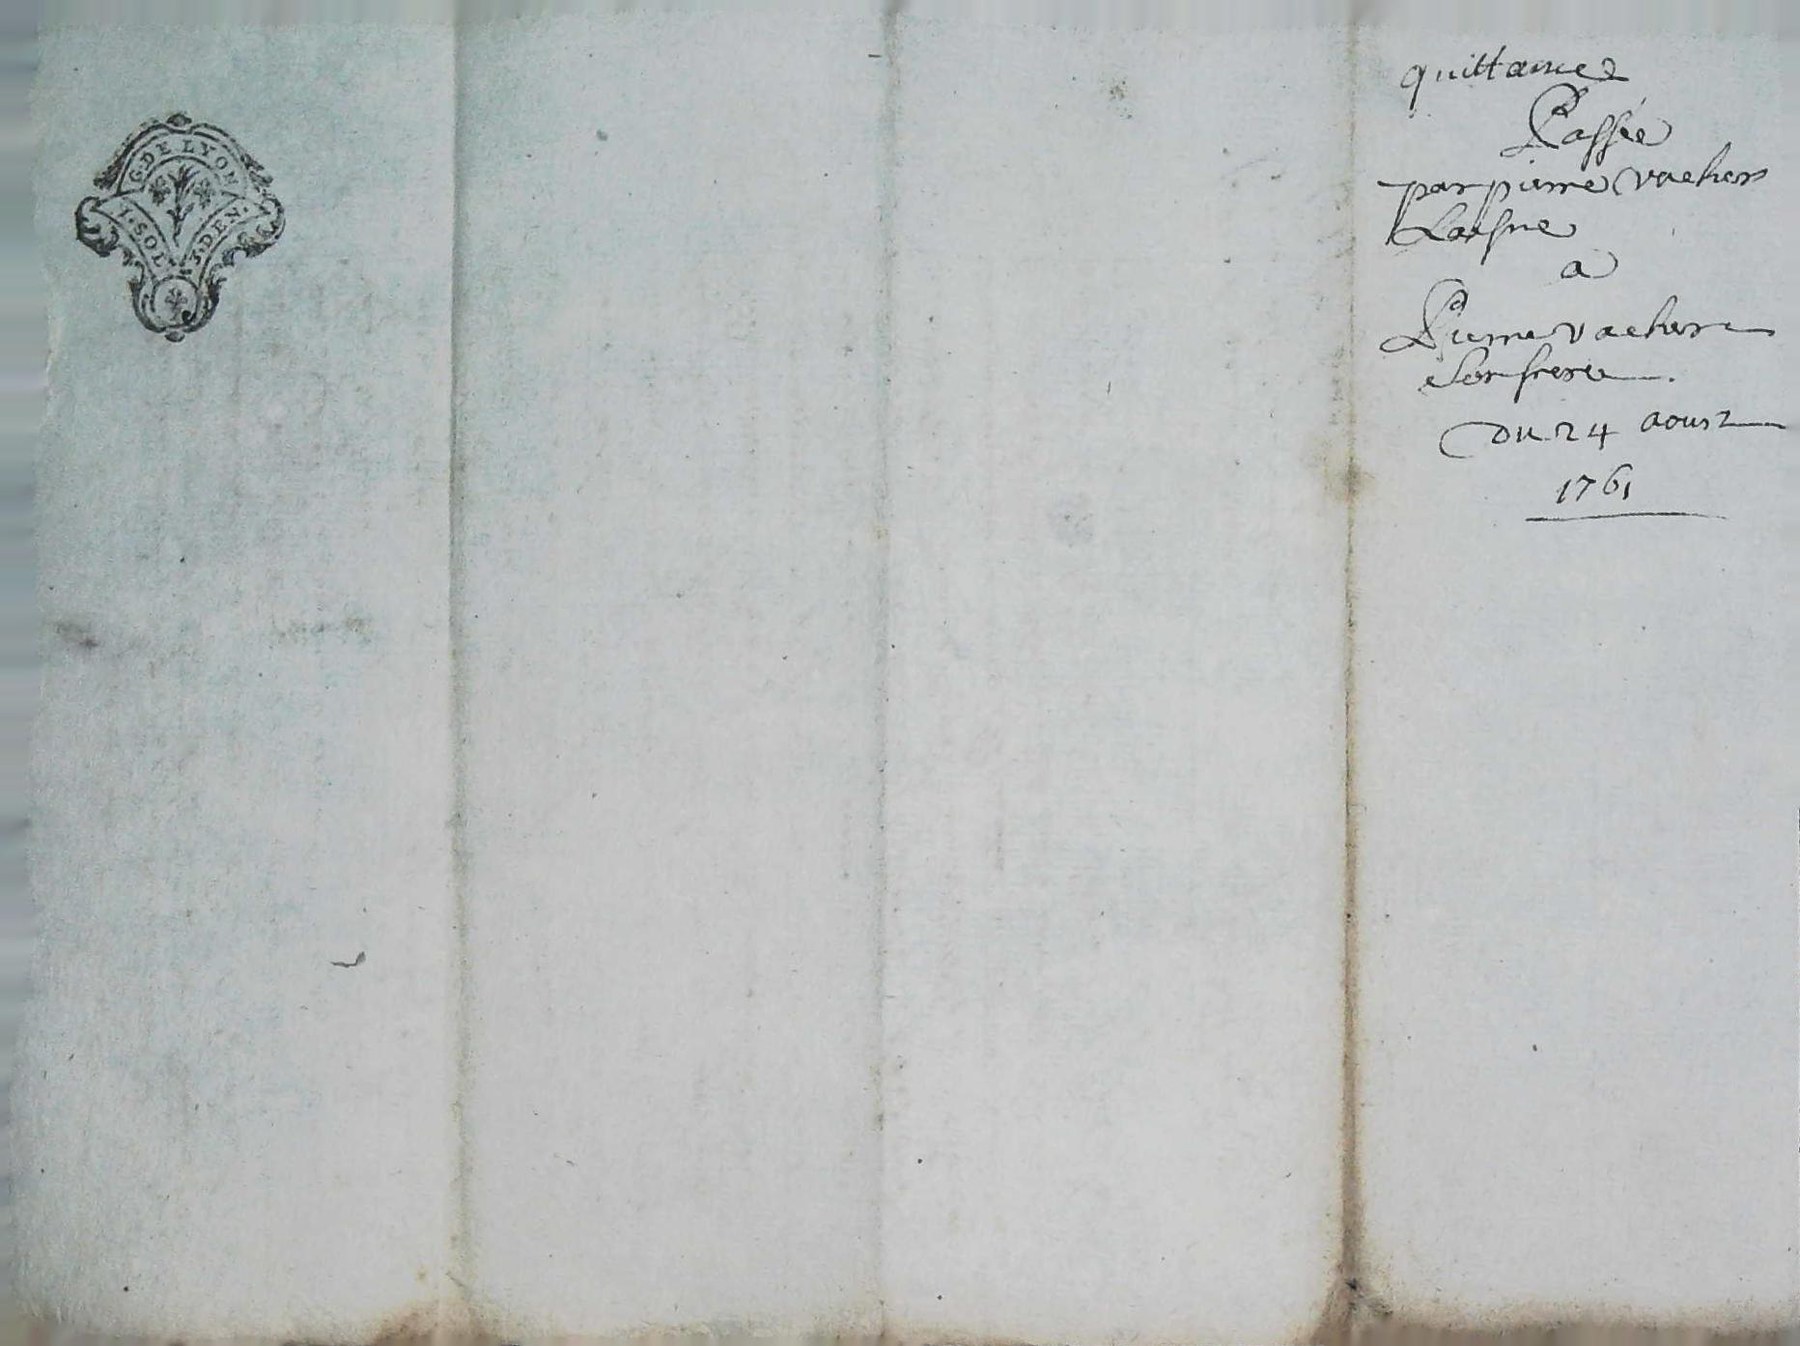 G. DE LYON
1. SOL. 4. DEN.
quittance
Passée
par pierre vacher
Laisne
a
Pierre vacher
son frere
Du 24 aoust
1761